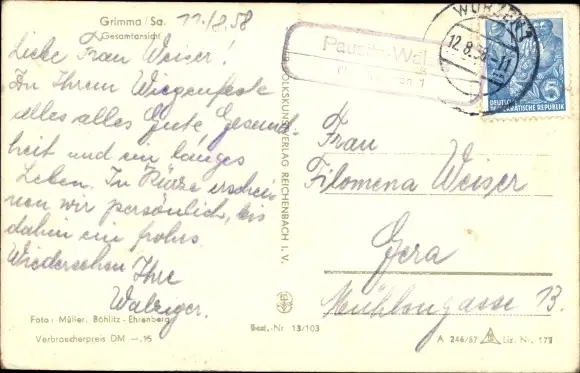 Grimma/Sa. 11./8.58
Gesamtansicht
Liebe Frau Weiser!
Zu Ihrem Wiegenfeste
alles alles Gute Gesund-
heit und ein langes
Leben. In Kürze erschei-
nen wir persönlich, bis
dahin ein frohes
Wiedersehen Ihre
Foto: Müller, Böhlitz-Ehrenberg
Verbraucherpreis DM -.15
VOLKSKUNSTVERLAG REICHENBACH I. V.
Best.-Nr 13/103
WURZEN 1
12.8.58-11
DEUTSCHE
DEMOKRATISCHE REPUBLIK
5
Frau
Filomena Weiser
Gera
Mühlengasse 13.
A 246/57 Liz. Nr. 172